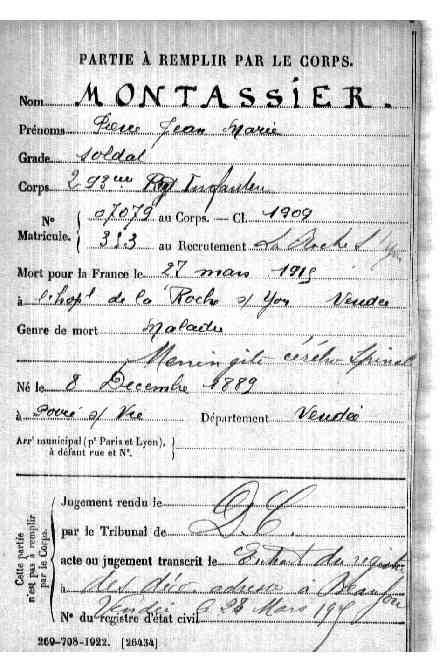 PARTIE À REMPLIR PAR LE CORPS.
Nom MONTASSIER.
Prénoms Pierre Jean Marie
Grade soldat
Corps 293me Rgt Infanterie
No 07079 au Corps. — Cl. 1909
Matricule. 313 au Recrutement La Roche s/ Yon
Mort pour la France le 27 mars 1915
à l'hopl de la Roche s/ Yon Vendée
Genre de mort Maladie
Meningite cérébro Spinale
Né le 8 Decembre 1889
à s/ Vie Département Vendée
Arrt municipal (pr Paris et Lyon),
à défaut rue et No.
Cette partie
n'est pas à remplir
par le Corps.
Jugement rendu le
par le Tribunal de D.C.
acte ou jugement transcrit le Extrait du registre
à des déc. adressé à
Vendée le 28 Mars 1915
No du registre d'état civil
269-708-1922. [26434]